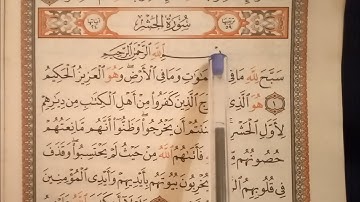 سُورَةُ الْحَشْرِ
اللَّهِ الرَّحْمَٰنِ الرَّحِيمِ
سَبَّحَ لِلَّهِ مَا فِي وَمَا فِي الْأَرْضِ وَهُوَ الْعَزِيزُ الْحَكِيمُ
١ هُوَ الَّذِي الَّذِينَ كَفَرُوا مِنْ أَهْلِ الْكِتَابِ مِن دِيَارِهِمْ
لِأَوَّلِ الْحَشْرِ ظَنَنتُمْ أَن يَخْرُجُوا وَظَنُّوا أَنَّهُم مَّانِعَتُهُمْ
حُصُونُهُم فَأَتَاهُمُ اللَّهُ مِنْ حَيْثُ لَمْ يَحْتَسِبُوا وَقَذَفَ
فِي قُلُوبِهِمُ يُخْرِبُونَ بُيُوتَهُم بِأَيْدِيهِمْ وَأَيْدِي الْمُؤْمِنِينَ